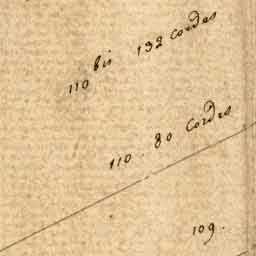 110 bis 132 cordes
110. 80 Cordes
109.